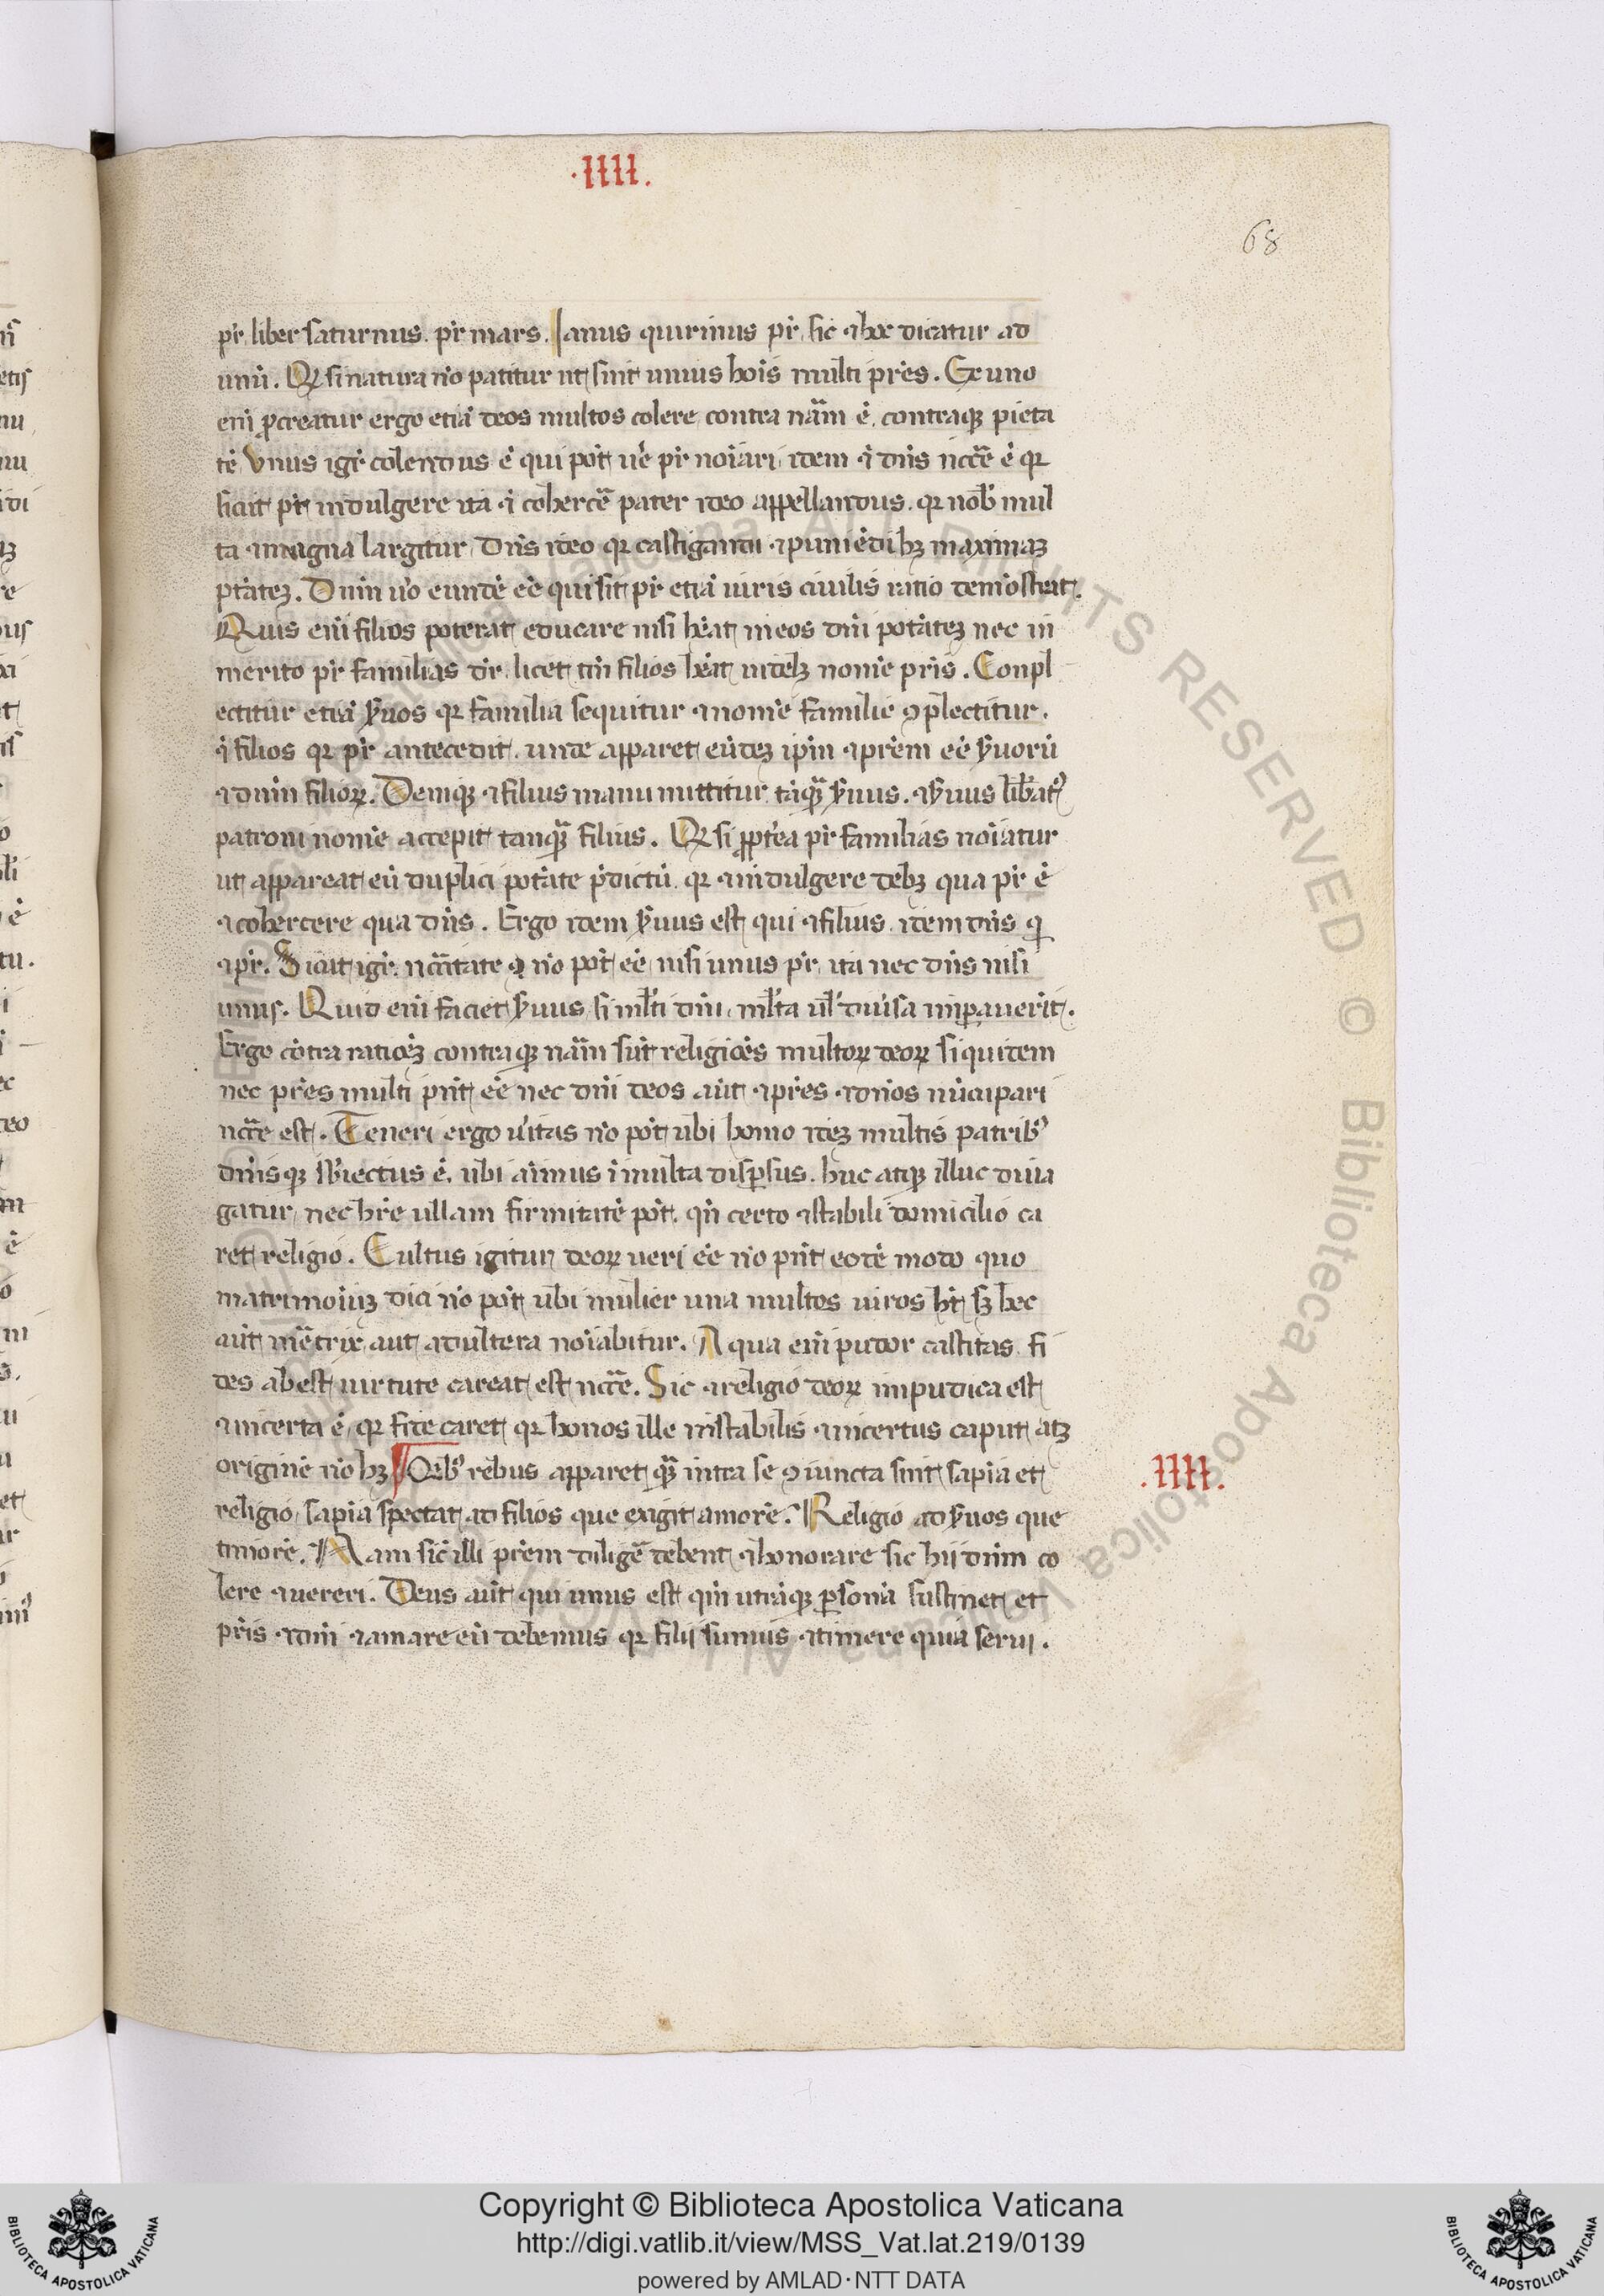 ·IIII.
68
pr̃ liber saturnus. pr̃ mars. Ianus quirinus pr̃ sic ⁊ hoc dicatur ad
unũ. Qꝛ si natura nõ patitur ut sint unius hoĩs multi pr̃es. Ex uno
enĩ ꝓcreatur ergo etiã deos multos colere contra nãm ẽ. contraqꝫ pieta
tẽ Vnus igr̃ colendus ẽ qui põt uẽ pr̃ noĩari idem ⁊ dñs nccẽ ẽ qꝛ
sicut põt indulgere ita ⁊ cohercẽ pater ideo appellandus. qꝛ nob̃ mul
ta ⁊ magna largitur dñs ideo qꝛ castigandi ⁊ puniẽdi hꝫ maximaꝫ
ptãteꝫ. Dnm u̾o eundẽ eẽ qui sit pr̃ etiã iuris ciuilis ratio demõstrat.
Quis enĩ filios poterat educare nisi hẽat in eos dñi potãteꝫ nec in
merito pr̃ familias dr̃. licet tm̃ filios hẽat uideꝫ nomĩe pr̃is. Conpl
ectitur etiã s̃uos qꝛ familia sequitur ⁊ nomẽ familie ꝯplectitur.
⁊ filios qꝛ pr̃ antecedit. unde apparet eũdeꝫ ip̃m ⁊ pr̃em eẽ s̃uorũ
⁊ dnm̃ filioꝝ. Deniqꝫ ⁊ filius manu mittitur tãqꝫ̃ s̃uus. ⁊ s̃uus lib̃atꝰ
patroni nomẽ accepit tanqꝫ̃ filius. Qꝛ si ꝓpt̾ea pr̃ familias noĩatur
ut appareat eũ duplici potãte p̃dictũ. qꝛ ⁊ indulgere debꝫ qua pr̃ ẽ
⁊ cohercere qua dñs. Ergo idem s̃uus est qui ⁊ filius. idem dñs qͥ
⁊ pr̃. Sicut igr̃. nccĩtate ⁊ nõ põt eẽ nisi unus pr̃ ita nec dñs nisi
unus. Quid enĩ faciet s̃uus si ml̃ti dñi ml̃ta ul̃ diu̾sa imꝑauerĩt.
Ergo cõtra ratiõeꝫ contraqꝫ nãm sũt religiões multoꝝ deoꝝ siquidem
nec pr̃es multi pñt eẽ nec dñi deos aũt ⁊ pr̃es ⁊ dños nũcupari
nccẽ est. Teneri ergo u̾itas nõ põt ubi homo ideꝫ multis patribꝰ
dñisqꝫ sb̃iectus ẽ. ubi aĩmus ĩ multa disꝑsus. huc atqꝫ illuc diua
gatur nec hr̃e ullam firmitatẽ põt. qñ certo ⁊ stabili domicilio ca
ret religio. Cultus igitur deoꝝ ueri eẽ nõ pñt eodẽ modo quo
matrimoĩuꝫ dici nõ põt ubi mulier una multos uiros hꝫ sꝫ hec
aũt mẽtrix aut adultera noĩabitur. A qua enĩ pudor castitas fi
des abest uirtute careat est nccẽ. Sic ⁊ religio deoꝝ impudica est
⁊ incerta ẽ qꝛ fide caret qꝛ honos ille instabilis ⁊ incertus caput atꝫ
originẽ nõ hꝫ ¶ Qĩbꝰ rebus apparet qꝫ̃ intra se ꝯiuncta sint sapĩa et
religio sapĩa spectat ad filios que exigit amorẽ. Religio ad s̃uos que
timorẽ. Nam sic̃ illi pr̃em diligẽ debent ⁊ honorare sic hii dnm̃ co
lere ⁊ uereri. Deus aũt qui unus est qm̃ utrãqꝫ ꝑsonã sustinet et
pr̃is ⁊ dñi ⁊ amare eũ debemus qꝛ filii sumus ⁊ timere quia serui.
.IIII.
Copyright © Biblioteca Apostolica Vaticana
http://digi.vatlib.it/view/MSS_Vat.lat.219/0139
powered by AMLAD·NTT DATA
BIBLIOTECA APOSTOLICA VATICANA
BIBLIOTECA APOSTOLICA VATICANA